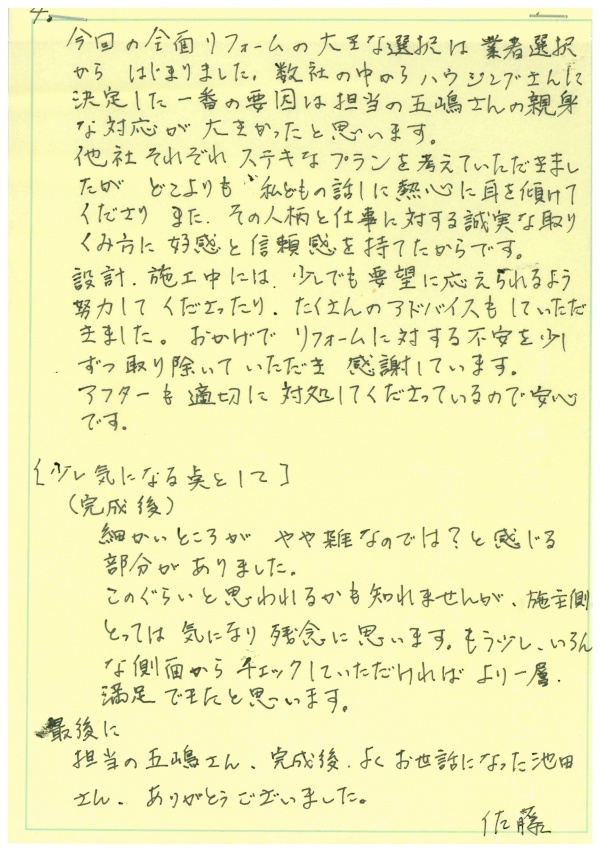 4.
今回の全面リフォームの大きな選択は 業者選択
から はじまりました。数社の中から ハウジングさんに
決定した一番の要因は担当の五嶋さんの親身
な対応が 大きかったと思います。
他社それぞれ ステキなプランを考えていただきまし
たが どこよりも 私どもの話しに熱心に耳を傾けて
くださり また、その人柄と仕事に対する誠実な取り
くみ方に 好感と信頼感を持てたからです。
設計、施工中には、少しでも要望に応えられるよう
努力して くださったり、たくさんのアドバイスも していただ
きました。おかげで リフォームに対する不安を少し
ずつ取り除いて いただき 感謝しています。
アフターも 適切に 対処してくださっているので安心
です。
[少し気になる点として]
(完成後)
細かいところが やや雑なのでは?と感じる
部分が ありました。
このぐらいと思われるかも知れませんが、施主側
とっては 気になり 残念に思います。もう少し、いろん
な側面から チェックしていただければ より一層、
満足できたと思います。
最後に
担当の五嶋さん、完成後、よくお世話になった池田
さん、ありがとうございました。
佐藤